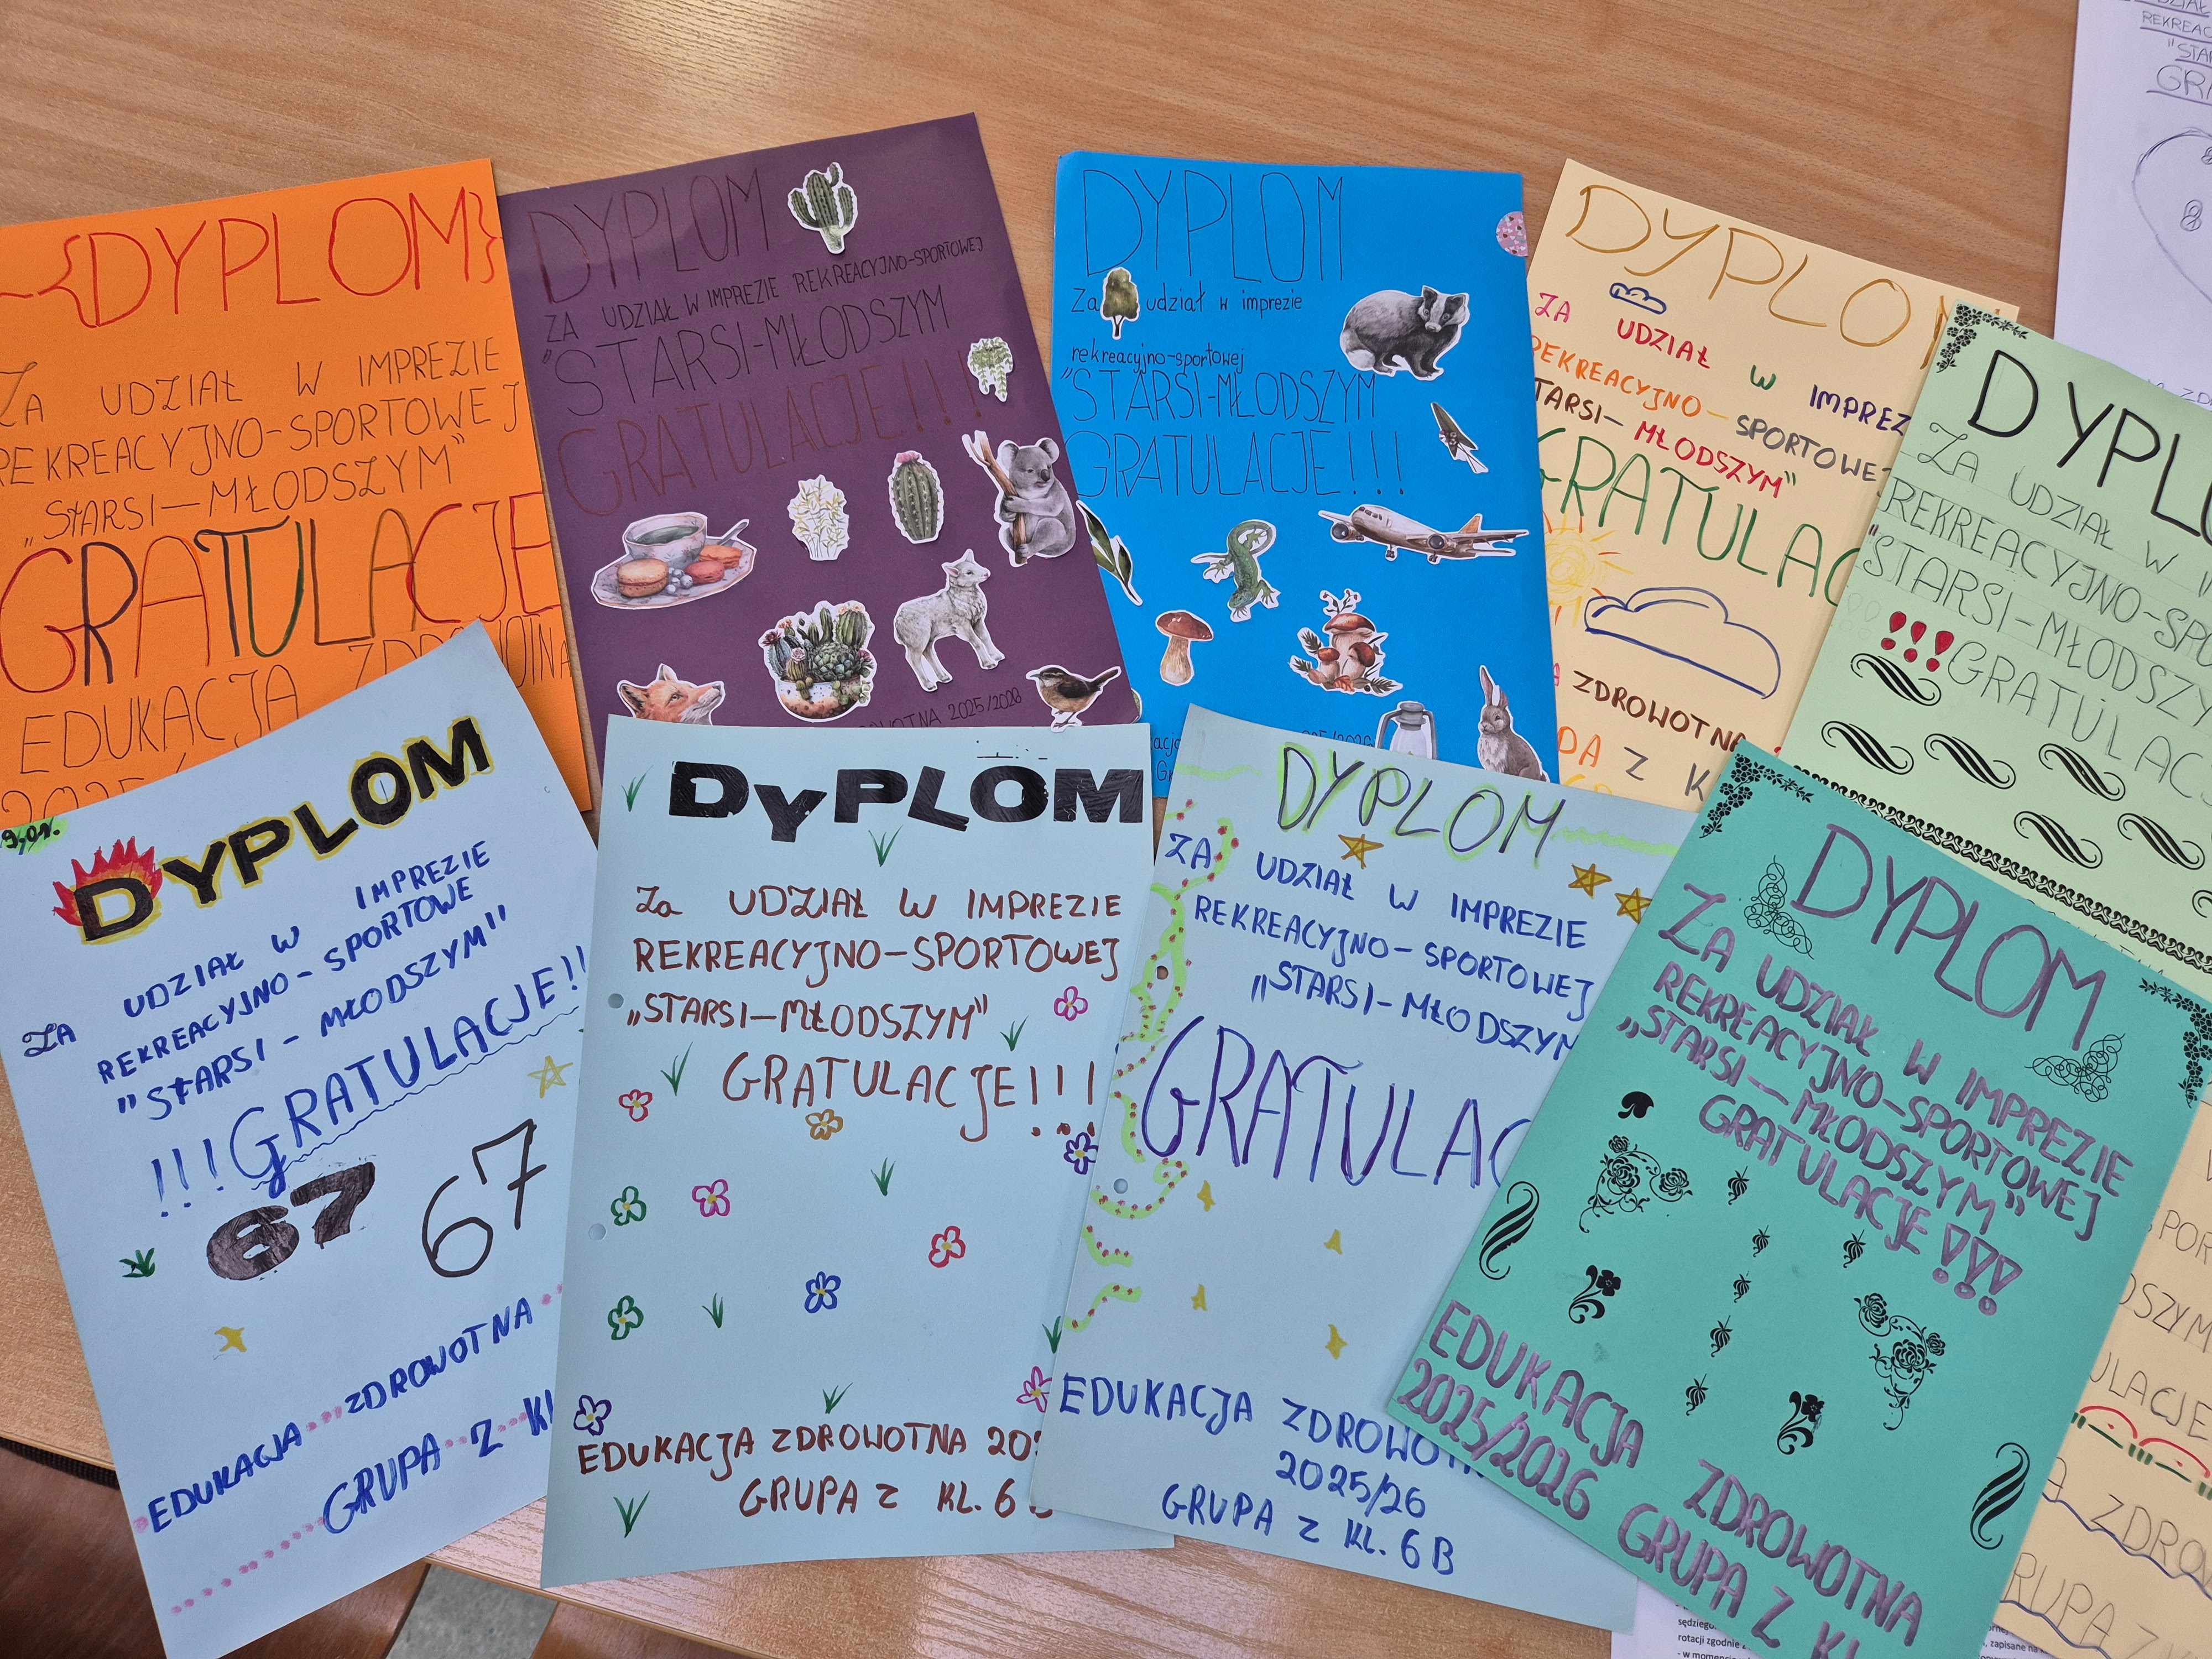 {DYPLOM}
ZA UDZIAŁ W IMPREZIE
REKREACYJNO-SPORTOWEJ
„STARSI-MŁODSZYM"
GRATULACJE
EDUKACJA ZDROWOTNA
DYPLOM
ZA UDZIAŁ W IMPREZIE REKREACYJNO-SPORTOWEJ
"STARSI-MŁODSZYM
GRATULACJE!!!
2025/2026
DYPLOM
Za udział w imprezie
rekreacyjno-sportowej
"STARSI-MŁODSZYM
GRATULACJE!!!
DYPLOM
ZA UDZIAŁ W IMPREZ
REKREACYJNO-SPORTOWEJ
STARSI-MŁODSZYM"
GRATULAC
ZDROWOTNA
Z K
DYPLO
ZA UDZIAŁ W
REKREACYJNO-SPO
"STARSI-MŁODSZY
!!!GRATULAC
DYPLOM
ZA UDZIAŁ W IMPREZIE
REKREACYJNO-SPORTOWE
"STARSI-MŁODSZYM"
!!!GRATULACJE!!
67 67
EDUKACJA ZDROWOTNA
GRUPA Z Kl
DYPLOM
Za UDZIAŁ W IMPREZIE
REKREACYJNO-SPORTOWEJ
„STARSI-MŁODSZYM"
GRATULACJE!!!
EDUKACJA ZDROWOTNA 202
GRUPA Z KL. 6 B
DYPLOM
ZA UDZIAŁ W IMPREZIE
REKREACYJNO-SPORTOWEJ
„STARSI-MŁODSZYM
GRATULAC
EDUKACJA ZDROWOTN
2025/26
GRUPA Z KL. 6 B
DYPLOM
ZA UDZIAŁ W IMPREZIE
REKREACYJNO-SPORTOWEJ
„STARSI-MŁODSZYM"
GRATULACJE!!!
EDUKACJA ZDROWOTNA
2025/2026 GRUPA Z KL
ULACJE
ZDRO
RUPA Z K
rotacji zgodnie z
zapisane na